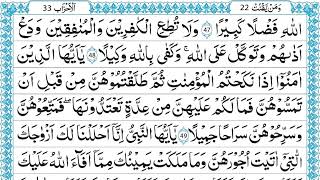 وَمَنْ يَّقْنُتْ 22 الْاَحْزَاب 33
اللّٰهِ فَضْلًا كَبِيْرًا ﴿47﴾ وَلَا تُطِعِ الْكٰفِرِيْنَ وَالْمُنٰفِقِيْنَ وَدَعْ
اَذٰىهُمْ وَتَوَكَّلْ عَلَى اللّٰهِ ؕ وَكَفٰى بِاللّٰهِ وَكِيْلًا ﴿48﴾ يٰۤاَيُّهَا الَّذِيْنَ
اٰمَنُوْۤا اِذَا نَكَحْتُمُ الْمُؤْمِنٰتِ ثُمَّ طَلَّقْتُمُوْهُنَّ مِنْ قَبْلِ اَنْ
تَمَسُّوْهُنَّ فَمَا لَكُمْ عَلَيْهِنَّ مِنْ عِدَّةٍ تَعْتَدُّوْنَهَا ۚ فَمَتِّعُوْهُنَّ
وَسَرِّحُوْهُنَّ سَرَاحًا جَمِيْلًا ﴿49﴾ يٰۤاَيُّهَا النَّبِيُّ اِنَّاۤ اَحْلَلْنَا لَكَ اَزْوَاجَكَ
الّٰتِيْۤ اٰتَيْتَ اُجُوْرَهُنَّ وَمَا مَلَكَتْ يَمِيْنُكَ مِمَّاۤ اَفَآءَ اللّٰهُ عَلَيْكَ